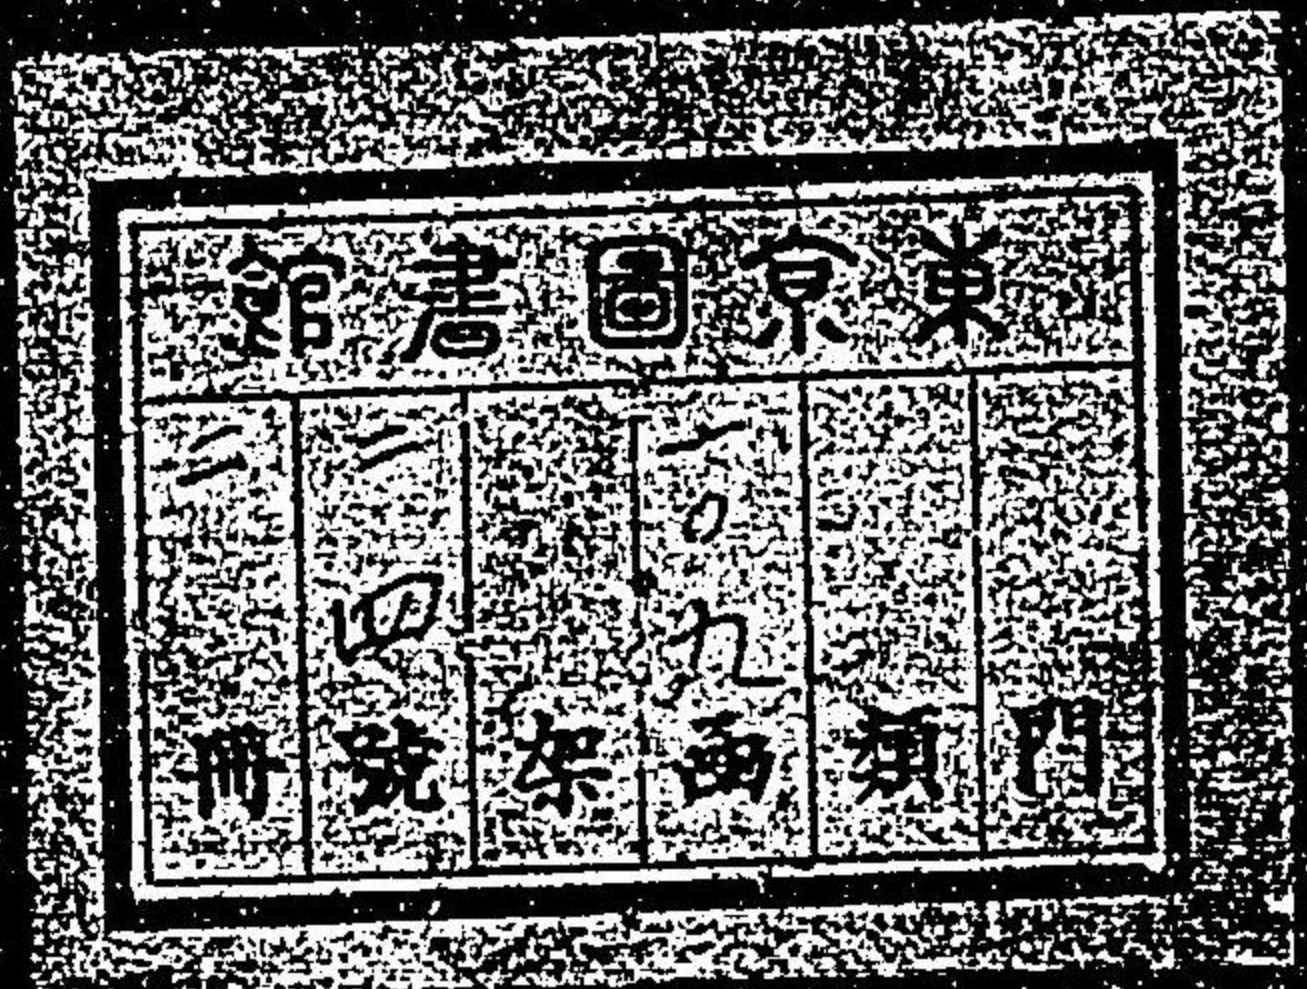 東亰圖書館
門
類
一〇九函
架
二四號
二冊